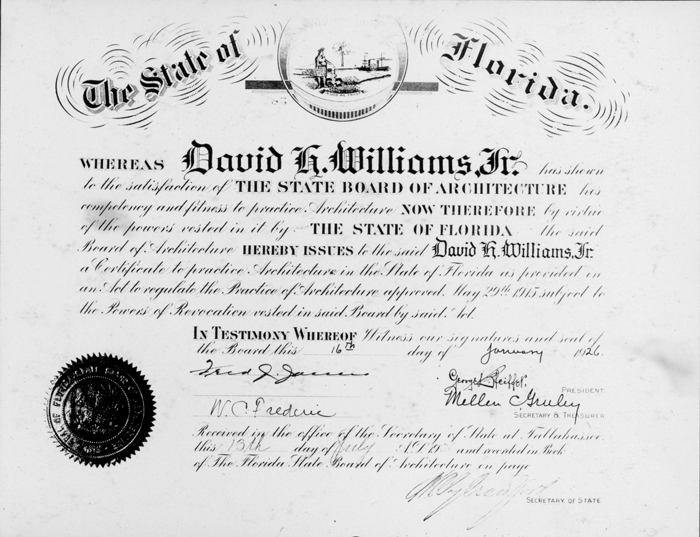 The State of Florida.
WHEREAS David H. Williams, Jr. has shown
to the satisfaction of THE STATE BOARD OF ARCHITECTURE his
competency and fitness to practice Architecture NOW THEREFORE by virtue
of the powers vested in it by THE STATE OF FLORIDA the said
Board of Architecture HEREBY ISSUES to the said David H. Williams, Jr.
a Certificate to practice Architecture in the State of Florida as provided in
an Act to regulate the Practice of Architecture approved, May 29th 1915 subject to
the Powers of Revocation vested in said Board by said Act.
IN TESTIMONY WHEREOF Witness our signatures and seal of
the Board this 16th day of January 1926
George Pfeiffer
PRESIDENT
Mellen C Greeley
SECRETARY & TREASURER
W. C. Frederic
Received in the office of the Secretary of State at Tallahassee
this 13th day of July A.D. and recorded in Book
of The Florida State Board of Architecture on page
SECRETARY OF STATE